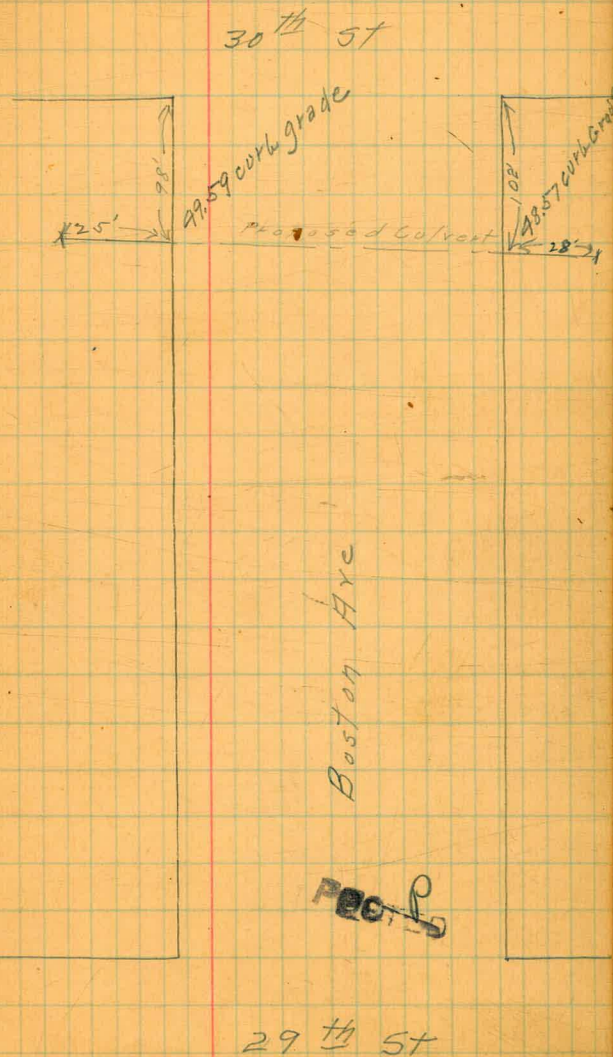 30th St
98'
49.59 curb grade
25'
Proposed Culvert
102'
48.57 curb Grade
28'
Boston Ave
P
29th St